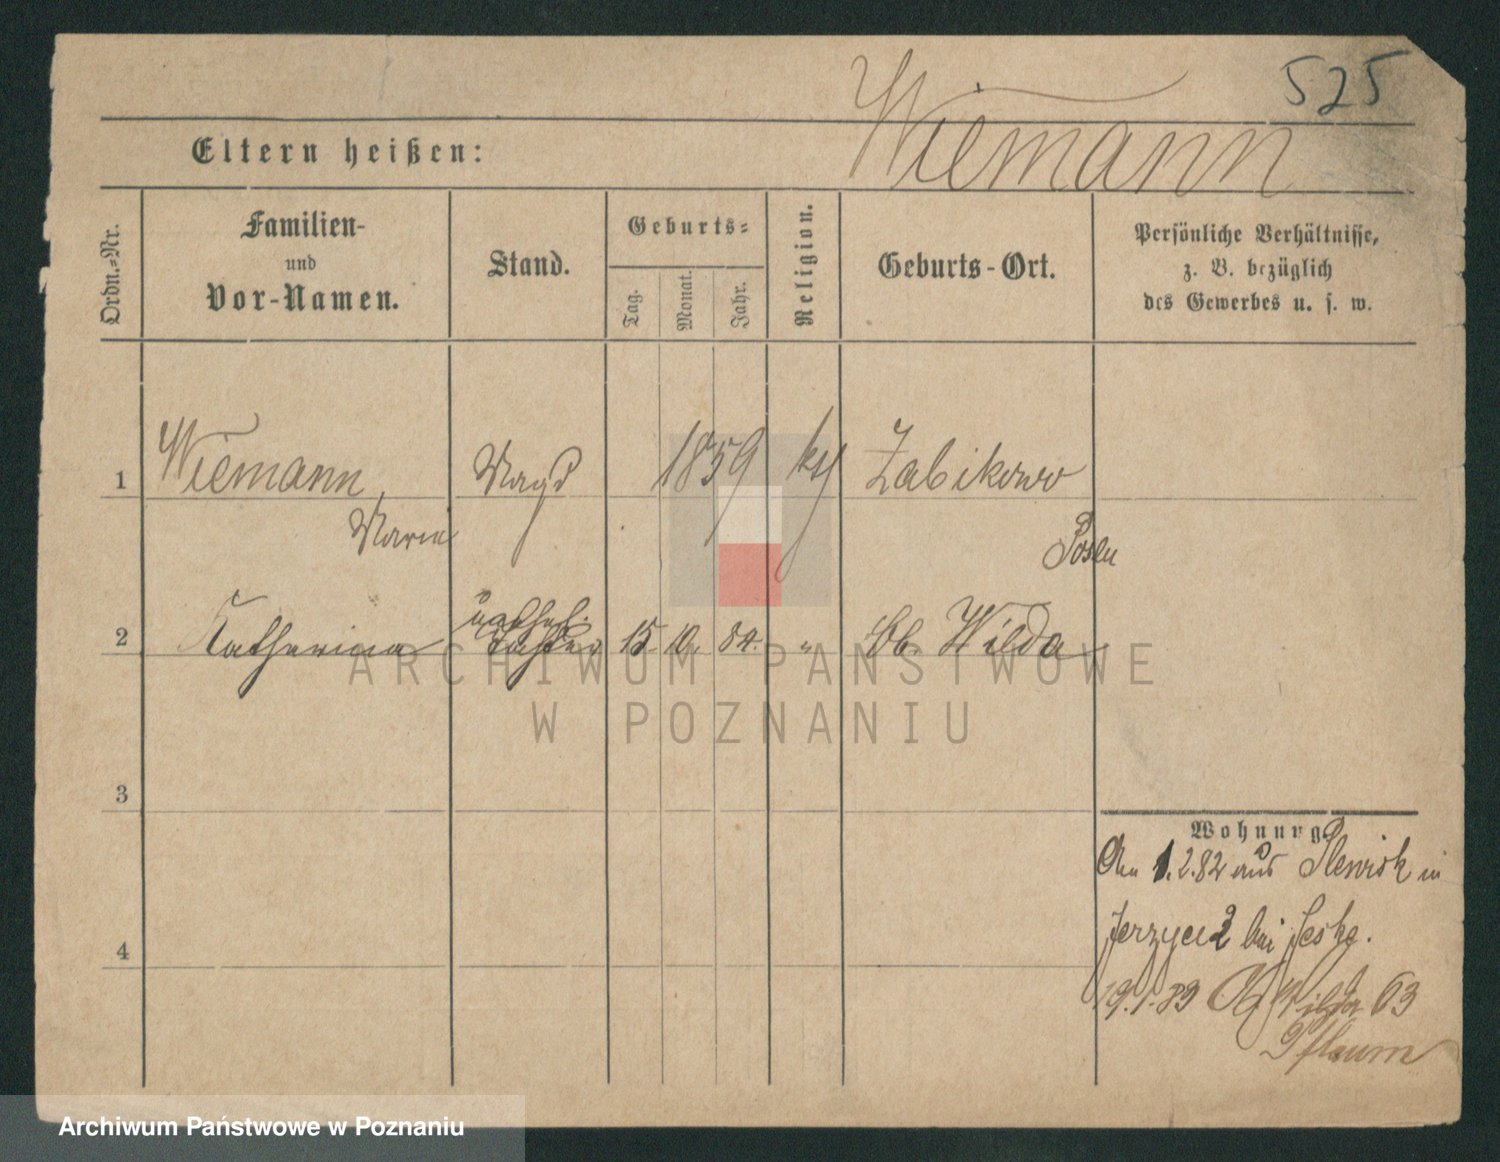 525
Wiemann
Eltern heißen:
Ordn.=Nr.
Familien-
und
Vor-Namen.
Stand.
Geburts=
Tag.
Monat.
Jahr.
Religion.
Geburts-Ort.
Persönliche Verhältnisse,
z. B. bezüglich
des Gewerbes u. s. w.
1 Wiemann, Magd 1859 kth Zabikowo
Marie Posen
unehel.
2 Katharina Tochter 15. 10. 84. " Ob. Wilda
3
Wohnung.
Am 1.2.82 aus Plewisk in
Jerzyce 2 bei
4
19.1.89 Ob. Wilda 63
Pflaum
ARCHIWUM PAŃSTWOWE
W POZNANIU
Archiwum Państwowe w Poznaniu